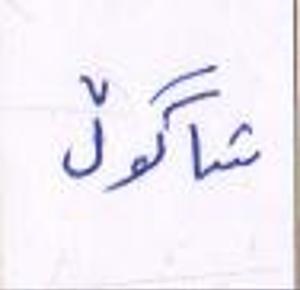 شاگوڵ